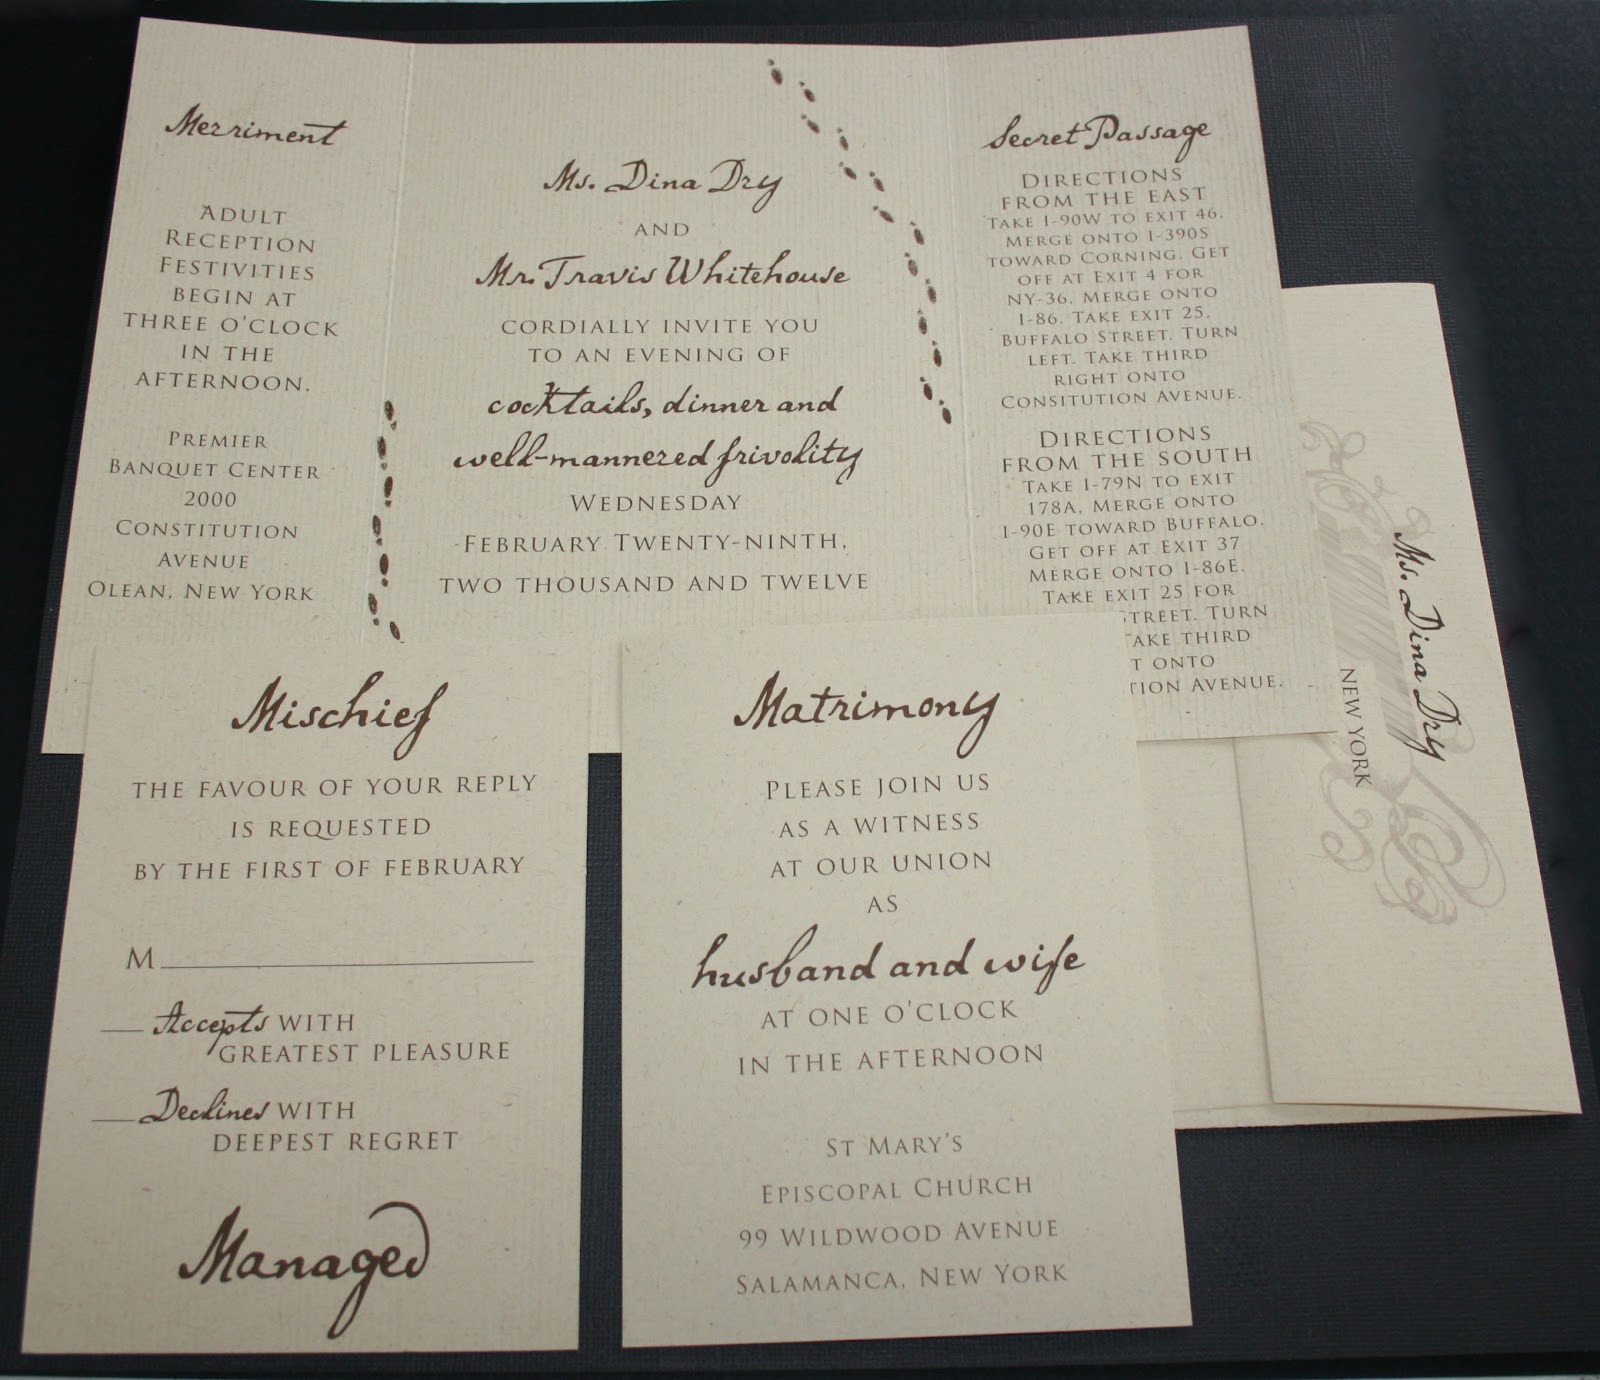 Merriment
Adult
Reception
Festivities
begin at
three o'clock
in the
afternoon.
Premier
Banquet Center
2000
Constitution
Avenue
Olean, New York
Ms. Dina Dry
and
Mr. Travis Whitehouse
cordially invite you
to an evening of
cocktails, dinner and
well-mannered frivolity
Wednesday
February Twenty-ninth,
two thousand and twelve
Secret Passage
Directions
from the East
Take I-90W to exit 46.
Merge onto I-390S
toward Corning. Get
off at Exit 4 for
NY-36. Merge onto
I-86. Take exit 25,
Buffalo Street. Turn
left. Take third
right onto
Consitution Avenue.
Directions
from the South
Take I-79N to exit
178A, Merge onto
I-90E toward Buffalo.
Get off at Exit 37
Merge onto I-86E.
Take exit 25 for
Street. Turn
Take third
onto
Avenue.
Ms. Dina Dry
New York
Mischief
The favour of your reply
is requested
by the first of February
M
Accepts with
greatest pleasure
Declines with
deepest regret
Managed
Matrimony
Please join us
as a witness
at our union
as
husband and wife
at one o'clock
in the afternoon
St Mary's
Episcopal Church
99 Wildwood Avenue
Salamanca, New York